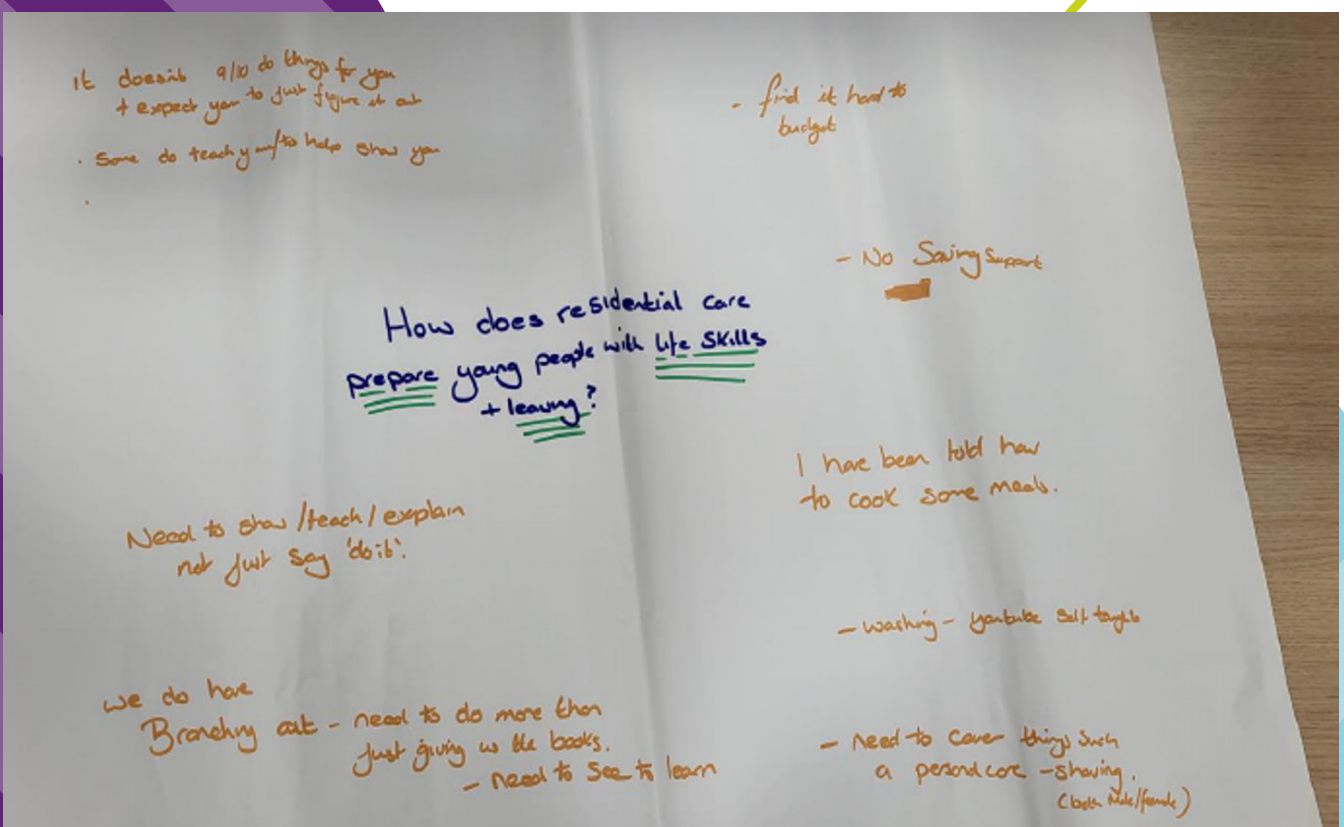 It doesnt 9/10 do things for you
+ expect you to just figure it out
. Some do teach you/to help show you
.
- find it hard to
budget
- No Saving Support
How does residential care
prepare young people with life skills
+ leaving?
I have been told how
to cook some meals.
Need to show / teach / explain
not just say 'do it'.
- washing - youtube self taught
we do have
Branching out - need to do more than
just giving us the books.
- need to see to learn
- need to cover things such
a personal care - shaving.
(both Male/female)